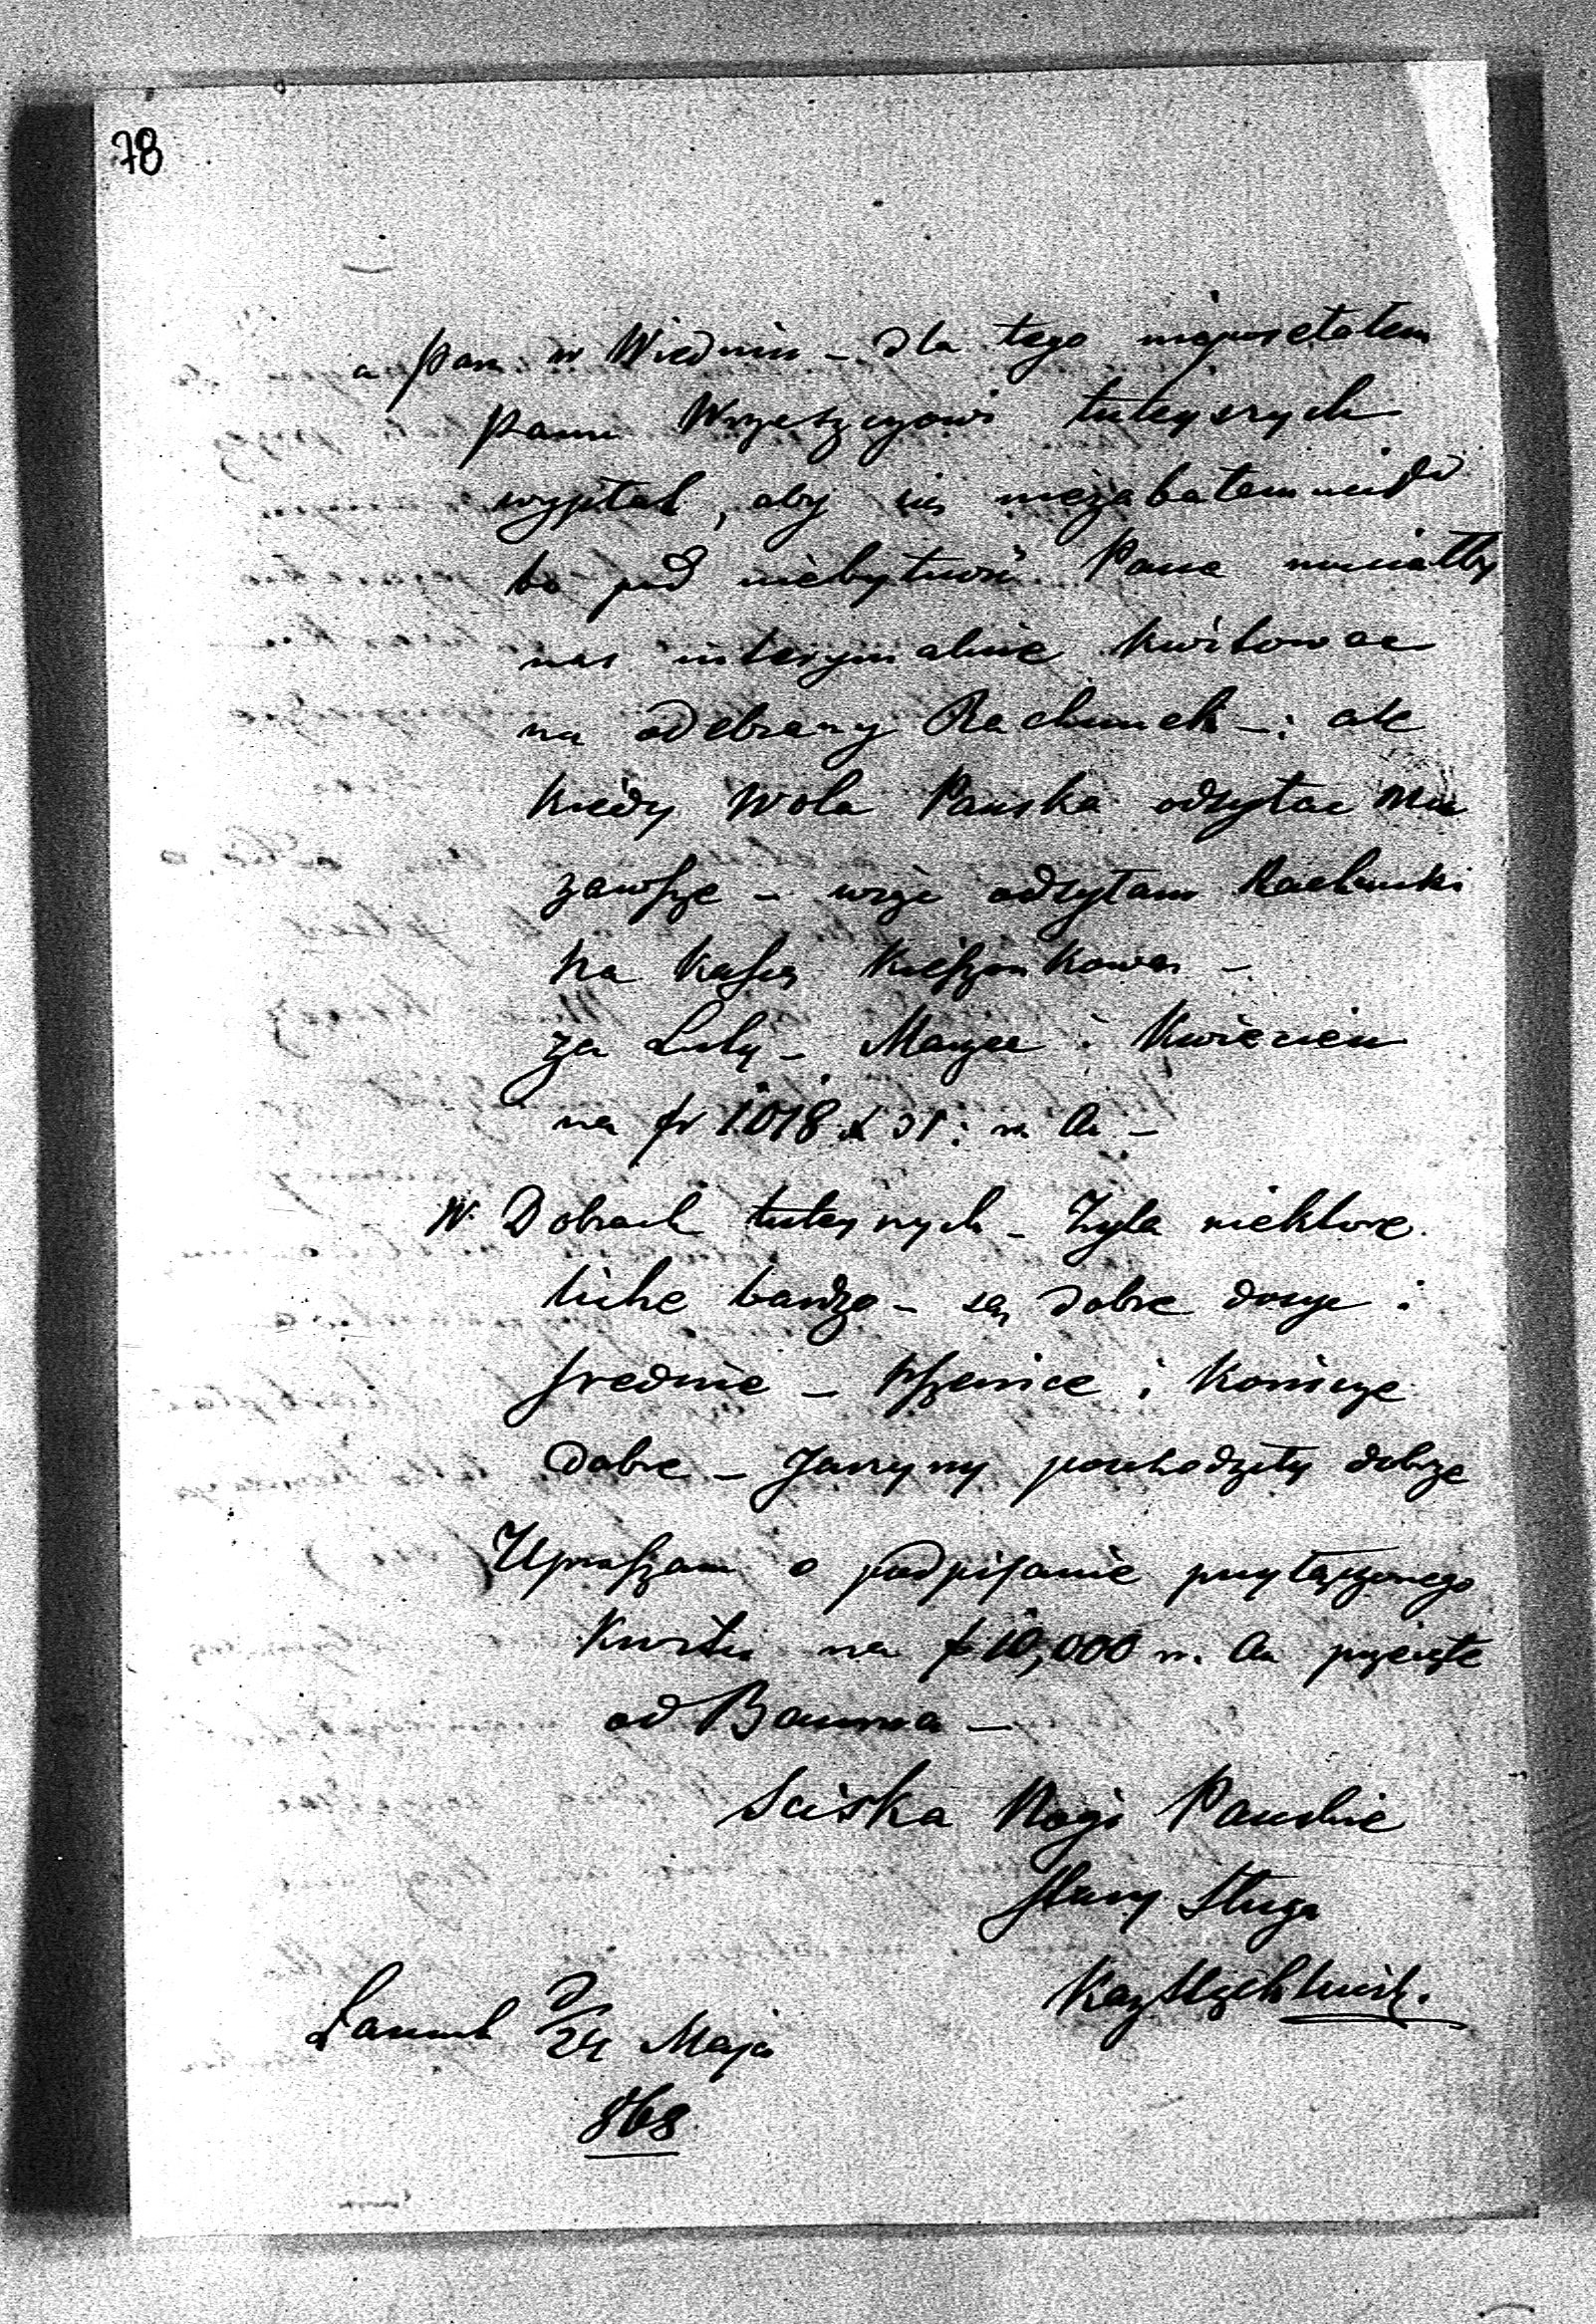 78
a Pan w Wiedniu – dla tego nieposełałem
Panu Wrzeszczowi tutejszych
wypłat, aby się niezabałamuciło
bo pod niebytność Pana musiałby
nas interymalnie kwitować
na odebrany Rachunek –: ale
kiedy Wola Pańska odsyłać Mu
zawsze – więc odsyłam Rachunki
na kassę kieszonkową –
za Luty – Marzec i Kwiecień
na fr 1018 x 51: w. a. –
W Dobrach tutejszych – Żyta niektore
liche bardzo – są dobre dosyć i
średnie – Pszenice i Konicze
dobre – Jarzyny powschodziły dobrze
Upraszam o podpisanie przyłączonego
Kwitu na f 10,000 w. a. przejęte
od Bauma –
Sciska Nogi Pańskie
stary Sługa
Łancut D/24 Maja
868